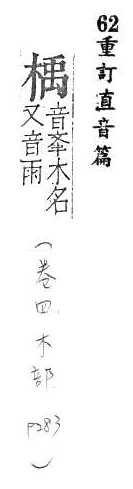 62重訂直音篇
楀音举木名
又音雨
(卷四 木部 P283)